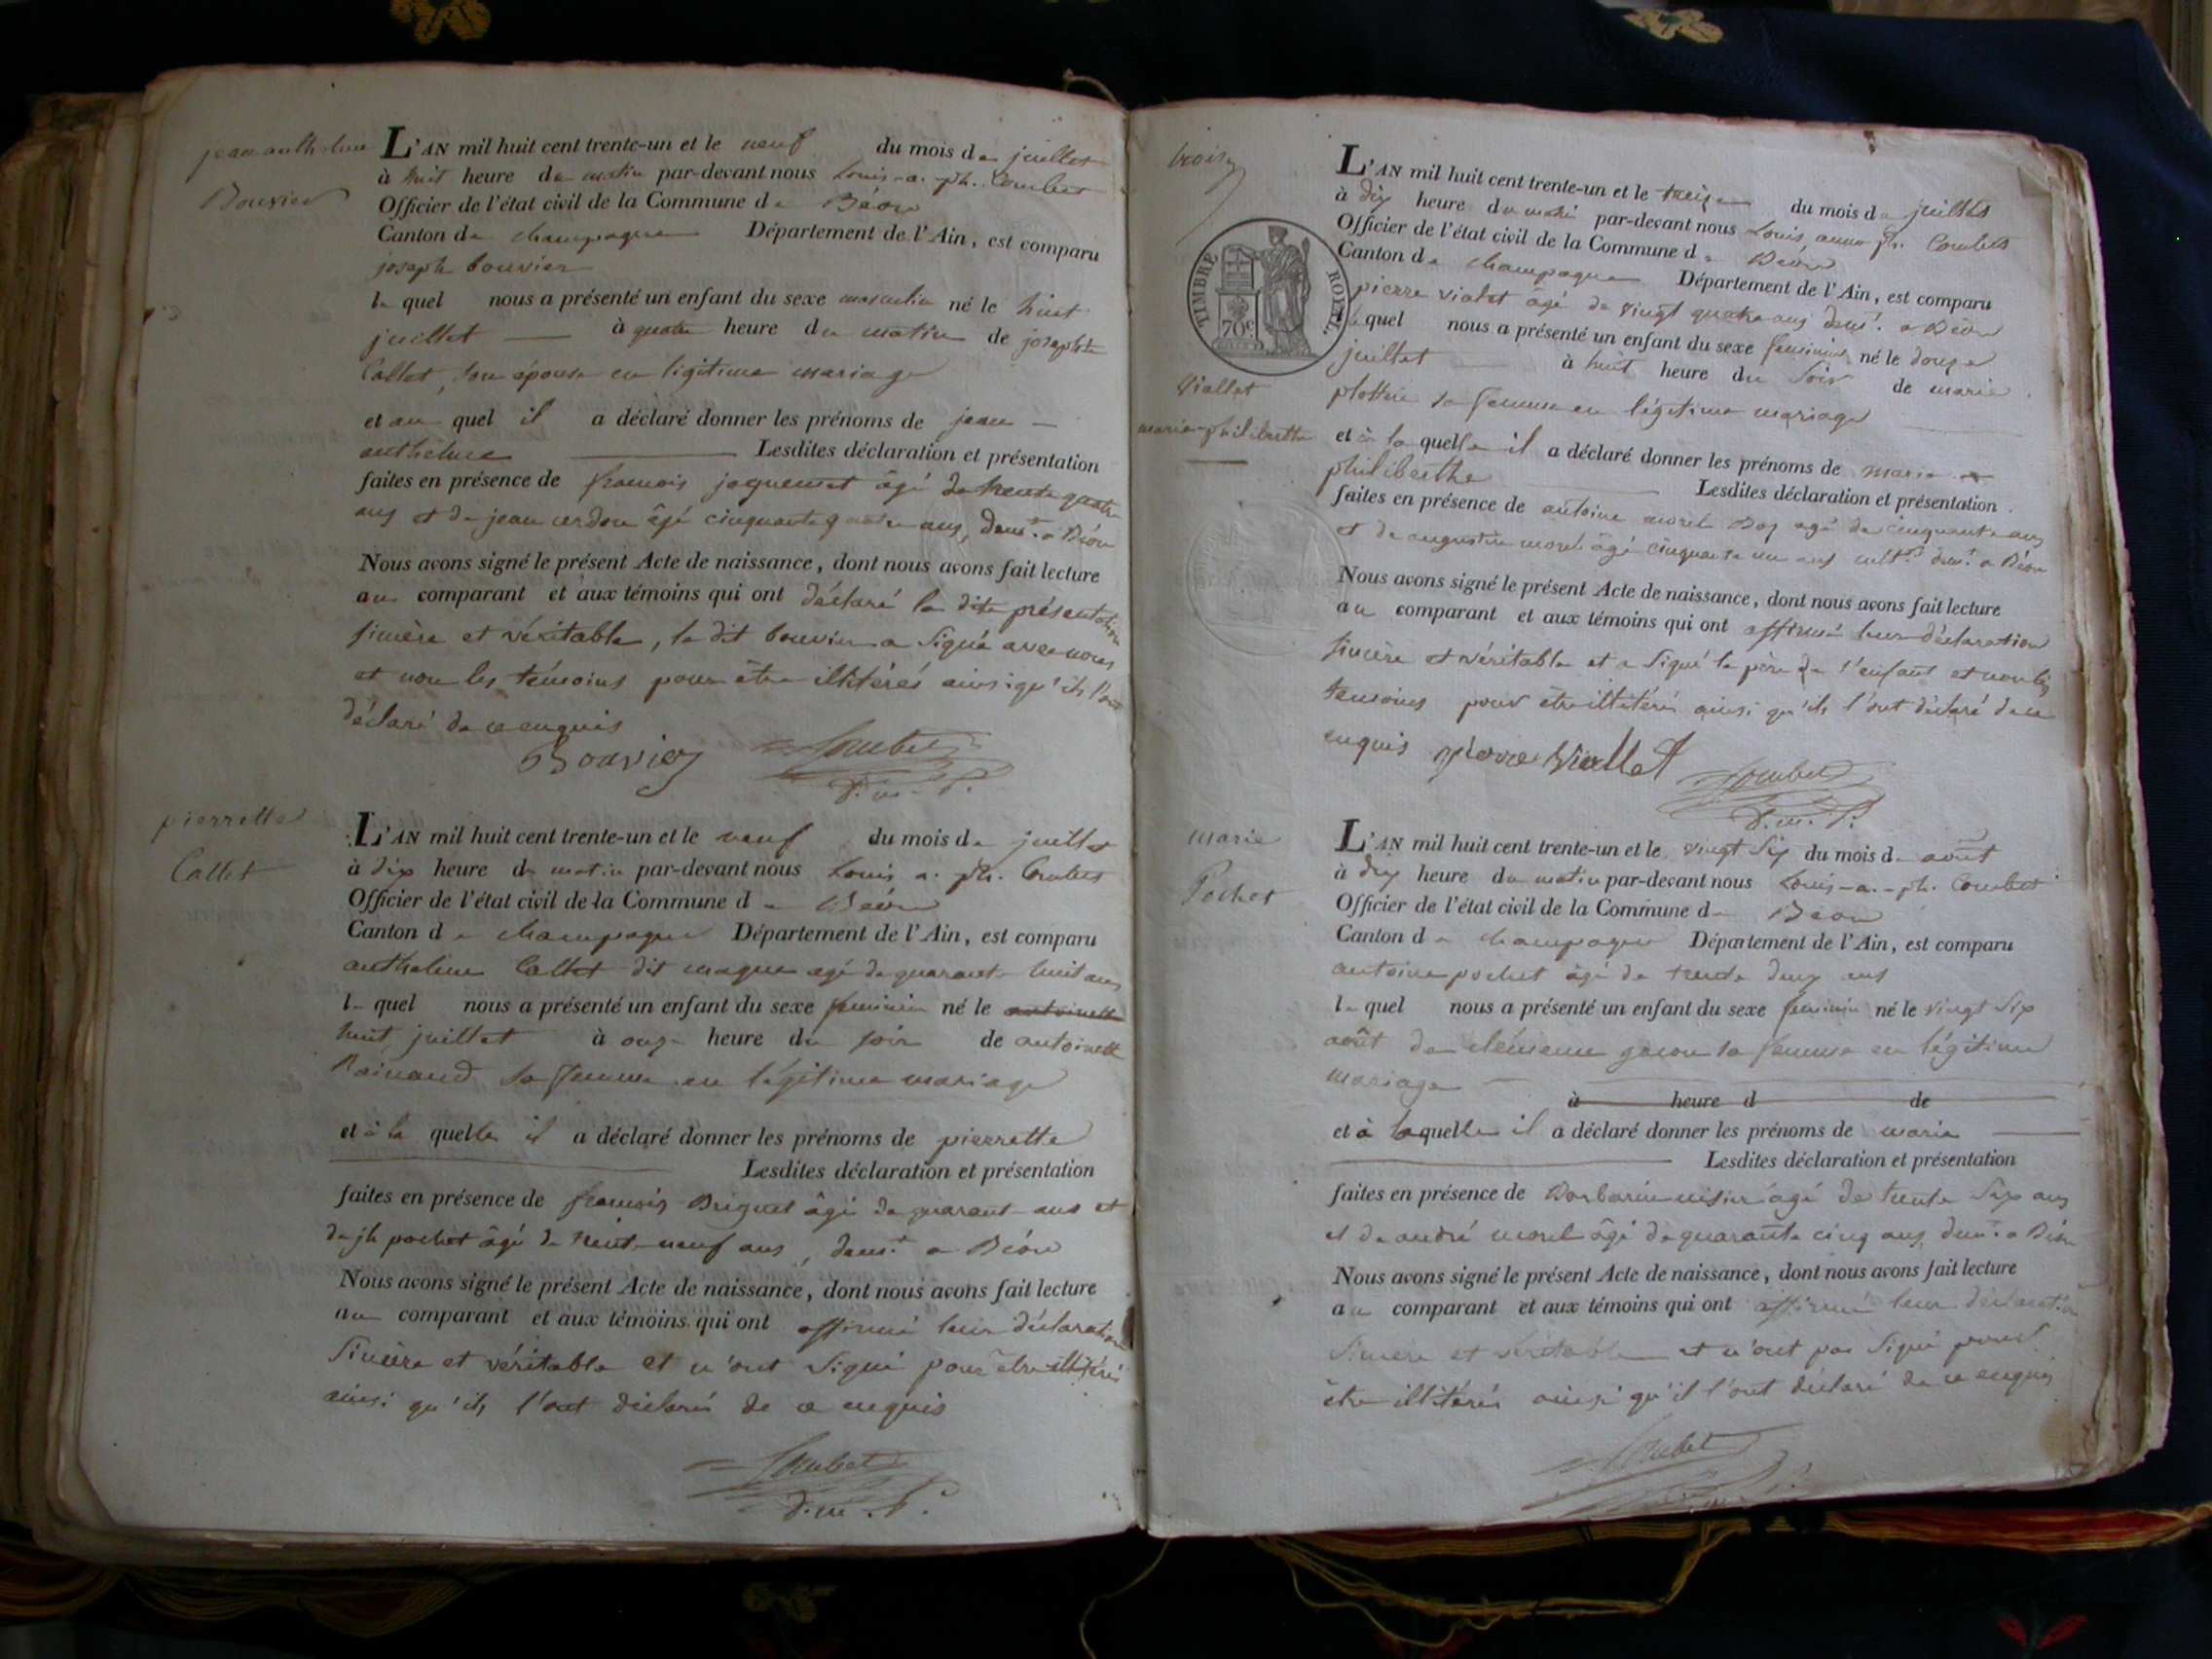 jean anthelme
Bouvier
L'AN mil huit cent trente-un et le neuf du mois de juillet
à huit heure du matin par-devant nous Louis-a.-ph. Combet
Officier de l'état civil de la Commune de Béon
Canton de champagne Département de l'Ain, est comparu
joseph bouvier
le quel nous a présenté un enfant du sexe masculin né le huit
juillet — à quatre heure du matin de josephte
Callet, son épouse en légitime mariage
et au quel il a déclaré donner les prénoms de jean —
anthelme — Lesdites déclaration et présentation
faites en présence de francois jaquemet âgé de trente quatre
ans et de jean cerdon âgé cinquante quatre ans, demt. a Béon
Nous avons signé le présent Acte de naissance, dont nous avons fait lecture
au comparant et aux témoins qui ont déclaré la dite présentation
sincère et véritable, le dit bouvier a signé avec nous
et non les témoins pour être illitérés ainsi qu'ils l'ont
déclaré de ce enquis
Bouvier Combet
D.m.P.
pierrette
Callet
L'AN mil huit cent trente-un et le neuf du mois de juillet
à dix heure du matin par-devant nous Louis a. ph. Combet
Officier de l'état civil de la Commune de Béon
Canton de champagne Département de l'Ain, est comparu
anthelme Callet dit maque agé de quarante huit ans
le quel nous a présenté un enfant du sexe feminin né le antoinette
huit juillet à onze heure du soir de antoinette
Rainaud sa femme en légitime mariage
et à la quelle il a déclaré donner les prénoms de pierrette
Lesdites déclaration et présentation
faites en présence de francois Briguet âgé de quarante ans et
de jh pochet âgé de trente-neuf ans, demt. a Béon
Nous avons signé le présent Acte de naissance, dont nous avons fait lecture
au comparant et aux témoins qui ont affirmé leur déclaration
sincère et véritable et n'ont signé pour être illitérés
ainsi qu'ils l'ont déclaré de ce enquis
Combet
D.m.P.
trois
TIMBRE ROYAL
70c
Viallet
marie-philiberthe
L'AN mil huit cent trente-un et le treize du mois de juillet
à dix heure du matin par-devant nous Louis anne ph. Combet
Officier de l'état civil de la Commune de Béon
Canton de champagne Département de l'Ain, est comparu
pierre violet âgé de vingt quatre ans demt. a Béon
le quel nous a présenté un enfant du sexe feminin né le douze
juillet — à huit heure du soir de marie
sa femme en légitime mariage
et à la quelle il a déclaré donner les prénoms de marie
philiberthe — Lesdites déclaration et présentation
faites en présence de antoine morel agé de cinquante ans
et de augustin morel âgé cinquante un ans cultrs demt. a Béon
Nous avons signé le présent Acte de naissance, dont nous avons fait lecture
au comparant et aux témoins qui ont affirmé leur déclaration
sincère et véritable et a signé le père de l'enfant et non les
temoins pour être illitérés ainsi qu'ils l'ont déclaré de ce
enquis pierre Viallet Combet
D.m.P.
marie
Pochet
L'AN mil huit cent trente-un et le vingt six du mois de août
à dix heure du matin par-devant nous Louis-a.-ph. Combet
Officier de l'état civil de la Commune de Béon
Canton de champagne Département de l'Ain, est comparu
antoine pochet âgé de trente deux ans
le quel nous a présenté un enfant du sexe feminin né le vingt six
août de clémence sa femme en légitime
mariage —
à heure d de
et à laquelle il a déclaré donner les prénoms de marie —
Lesdites déclaration et présentation
faites en présence de agé de trente six ans
et de andré morel âgé de quarante cinq ans demt. a Béon
Nous avons signé le présent Acte de naissance, dont nous avons fait lecture
au comparant et aux témoins qui ont affirmé leur déclaration
sincère et véritable et n'ont pas signé pour
être illitérés ainsi qu'il l'ont déclaré de ce enquis
Combet